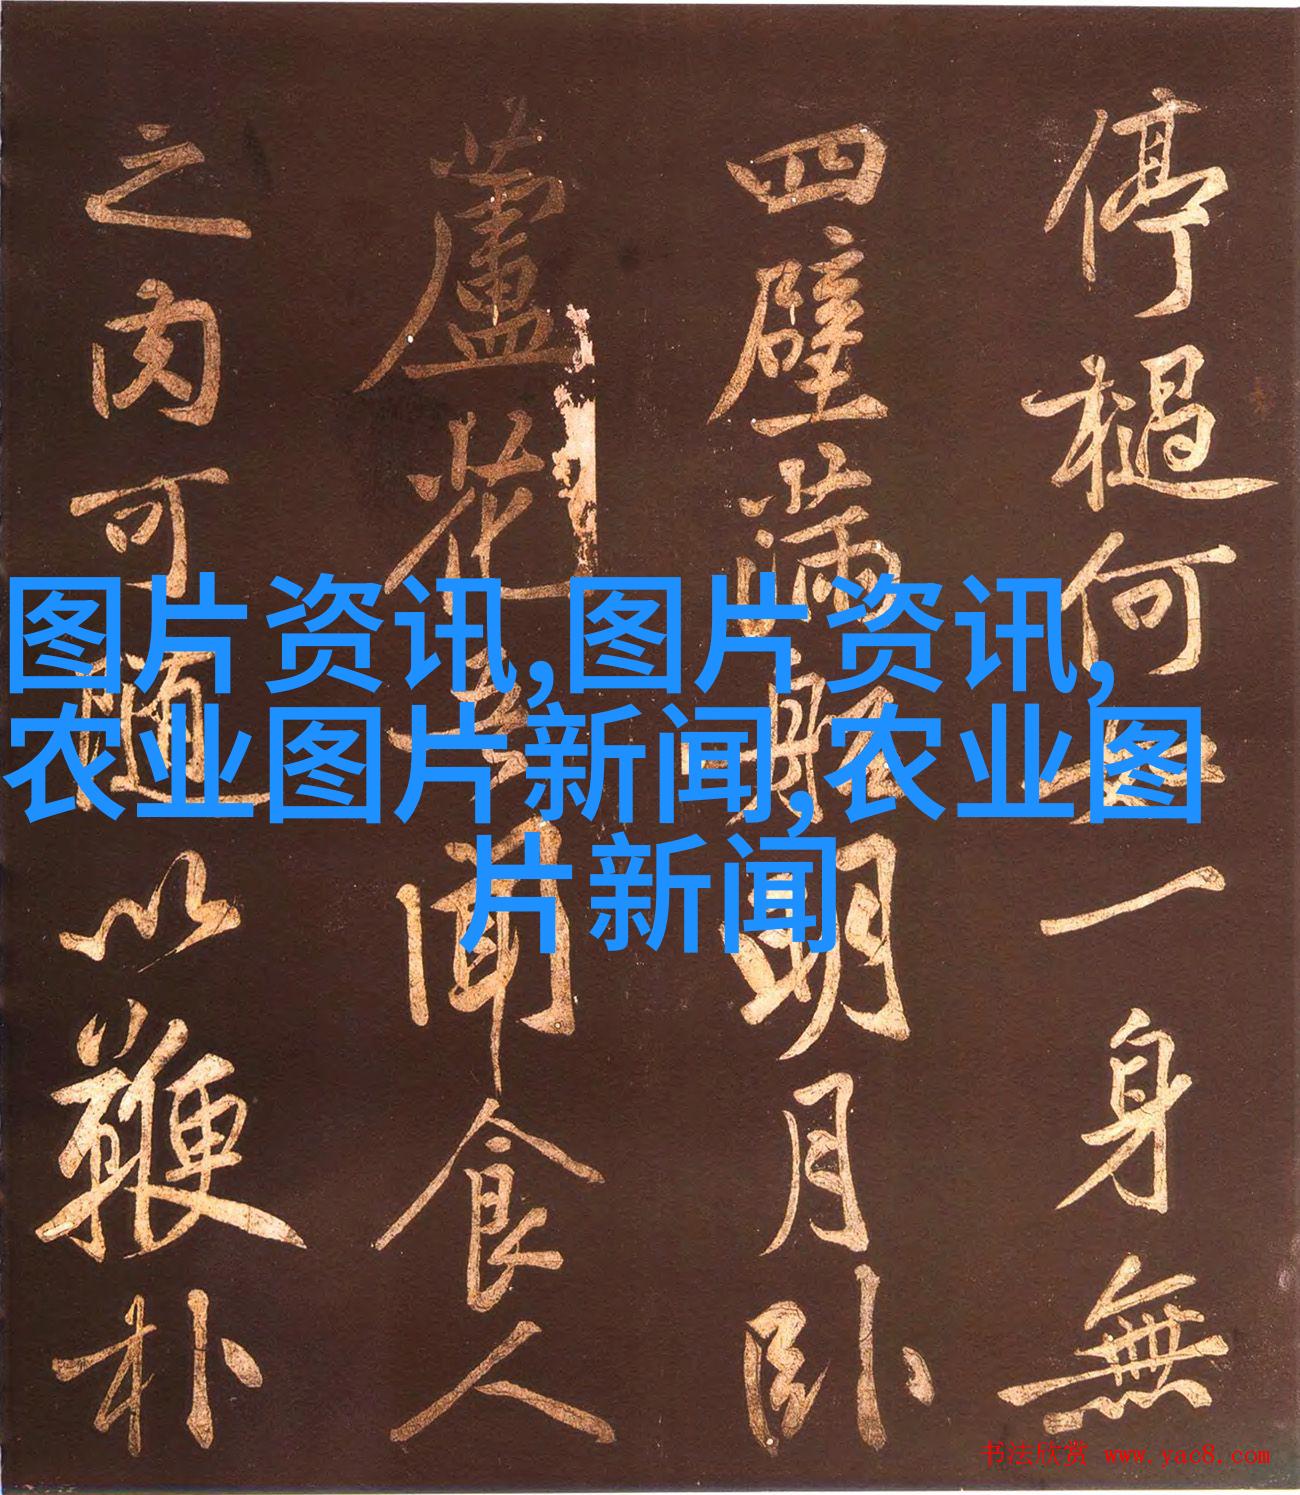 停檛何無一身無
四壁滿船明月卧
蘆花吾聞食人
之肉可随以鞭朴
图片资讯,图片资讯,
农业图片新闻,农业图
片新闻
书法欣赏 www.yac8.com